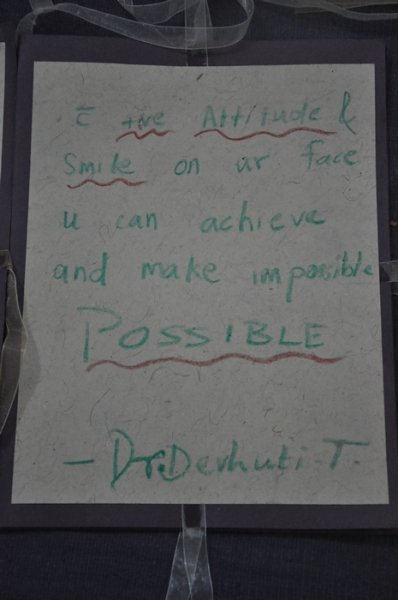 c̄ +ve Attitude &
Smile on ur face
u can achieve
and make impossible
POSSIBLE
- Dr. Devhuti. T.